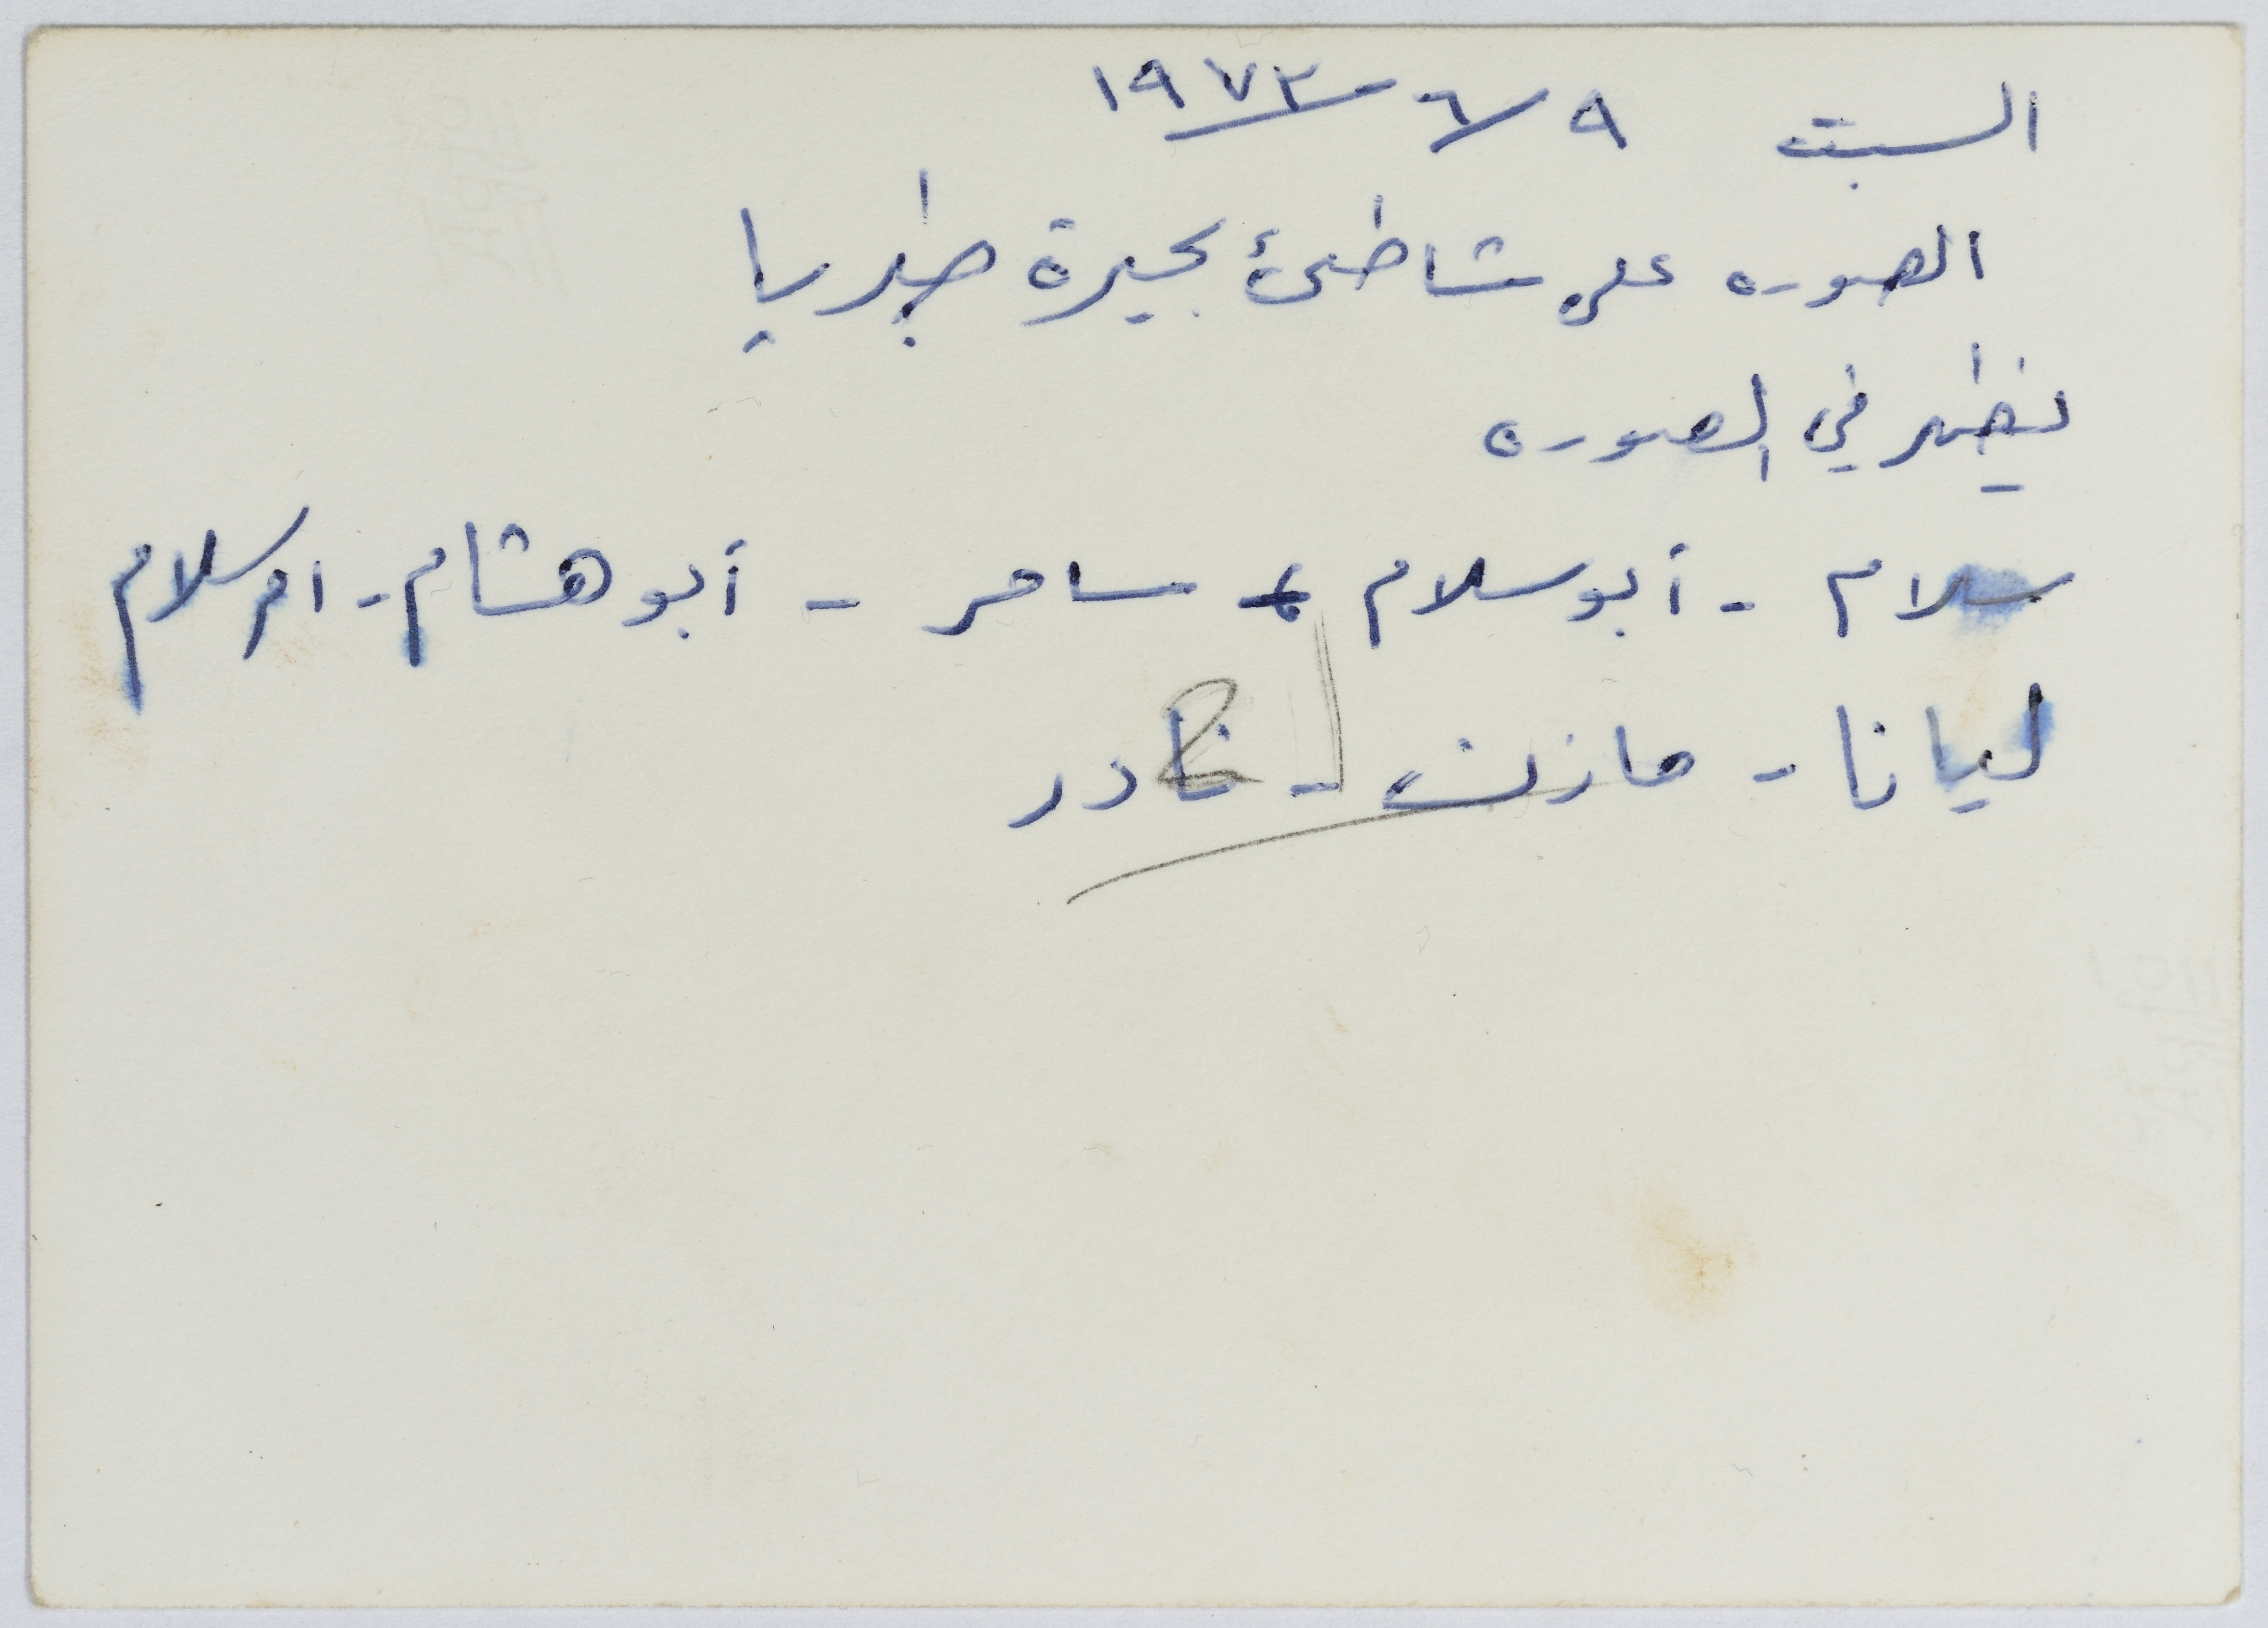 السبت ٩/٦/١٩٧٣
الصوره على شاطئ بحيرة طبريا
يظهر في الصوره
سلام - أبو سلام - سامر - أبو هشام - ام سلام
ليانا - مازن - نادر
2